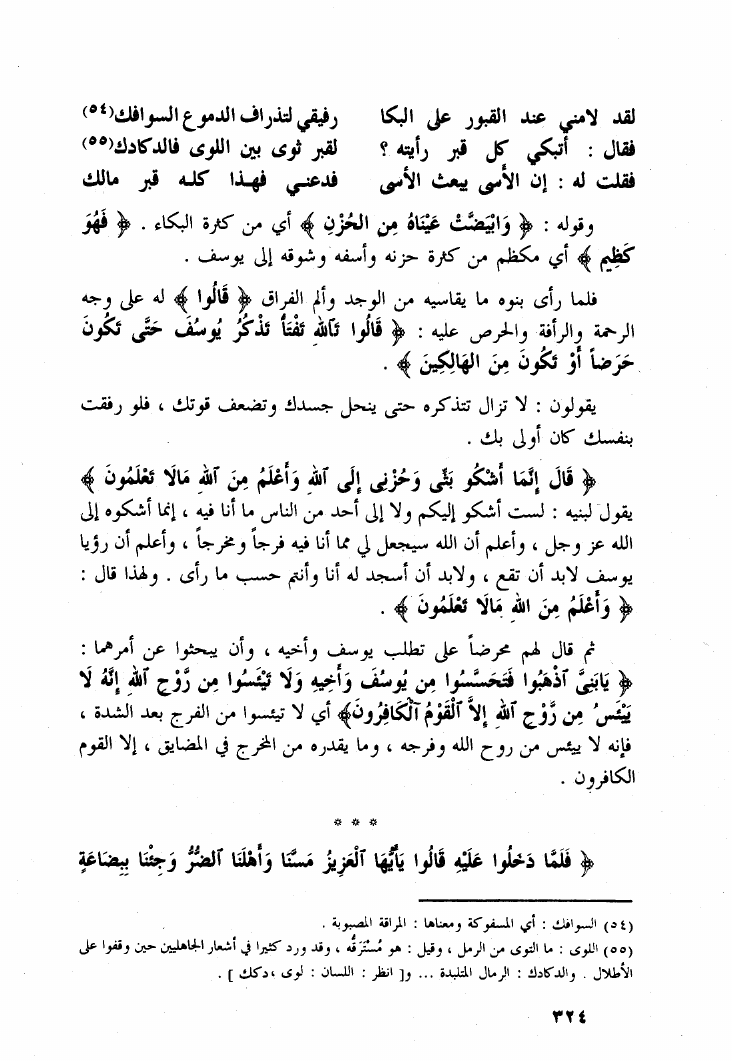 لقد لامني عند القبور على البكا رفيقي لتذراف الدموع السوافك(٥٤)
فقال : أتبكي كل قبر رأيته ؟ لقبر ثوى بين اللوى فالدكادك(٥٥)
فقلت له : إن الأسى يبعث الأسى فدعني فهذا كله قبر مالك
وقوله : ﴿ وَابْيَضَّتْ عَيْنَاهُ مِنَ الحُزْنِ ﴾ أي من كثرة البكاء . ﴿ فَهُوَ
كَظِيم ﴾ أي مكظم من كثرة حزنه وأسفه وشوقه إلى يوسف .
فلما رأى بنوه ما يقاسيه من الوجد وألم الفراق ﴿ قَالُوا ﴾ له على وجه
الرحمة والرأفة والحرص عليه : ﴿ قَالُوا تَاللهِ تَفْتَأُ تَذْكُرُ يُوسُفَ حَتَّى تَكُونَ
حَرَضاً أَوْ تَكُونَ مِنَ الهَالِكِينَ ﴾ .
يقولون : لا تزال تتذكره حتى ينحل جسدك وتضعف قوتك ، فلو رفقت
بنفسك كان أولى بك .
﴿ قَالَ إِنَّمَا أَشْكُو بَثِّى وَحُزْنِى إِلَى ٱللهِ وَأَعْلَمُ مِنَ ٱللهِ مَالَا تَعْلَمُونَ ﴾
يقول لبنيه : لست أشكو إليكم ولا إلى أحد من الناس ما أنا فيه ، إنما أشكوه إلى
الله عز وجل ، وأعلم أن الله سيجعل لي مما أنا فيه فرجاً ومخرجاً ، وأعلم أن رؤيا
يوسف لابد أن تقع ، ولابد أن أسجد له أنا وأنتم حسب ما رأى . ولهذا قال :
﴿ وَأَعْلَمُ مِنَ اللهِ مَالَا تَعْلَمُونَ ﴾ .
ثم قال لهم محرضاً على تطلب يوسف وأخيه ، وأن يبحثوا عن أمرهما :
﴿ يَابَنِىَّ ٱذْهَبُوا فَتَحَسَّسُوا مِن يُوسُفَ وَأَخِيهِ وَلَا تَيْئَسُوا مِن رَوْحِ ٱللهِ إِنَّهُ لَا
يَيْئَسُ مِن رَّوْحِ ٱللهِ إِلاَّ ٱلْقَوْمُ ٱلْكَافِرُونَ﴾ أي لا تيئسوا من الفرج بعد الشدة ،
فإنه لا ييئس من روح الله وفرجه ، وما يقدره من المخرج في المضايق ، إلا القوم
الكافرون .
* * *
﴿ فَلَمَّا دَخَلُوا عَلَيْهِ قَالُوا يَأَيُّهَا ٱلْعَزِيزُ مَسَّنَا وَأَهْلَنَا ٱلضُّرُّ وَجِئْنَا بِبِضَاعَةٍ
(٥٤) السوافك : أي المسفوكة ومعناها : المراقة المصبوبة .
(٥٥) اللوى : ما التوى من الرمل ، وقيل : هو مُسْتَرَقُّه ، وقد ورد كثيرا في أشعار الجاهليين حين وقفوا على
الأطلال . والدكادك : الرمال المتلبدة ... و[ انظر : اللسان : لوى ، دكك ] .
٣٢٤